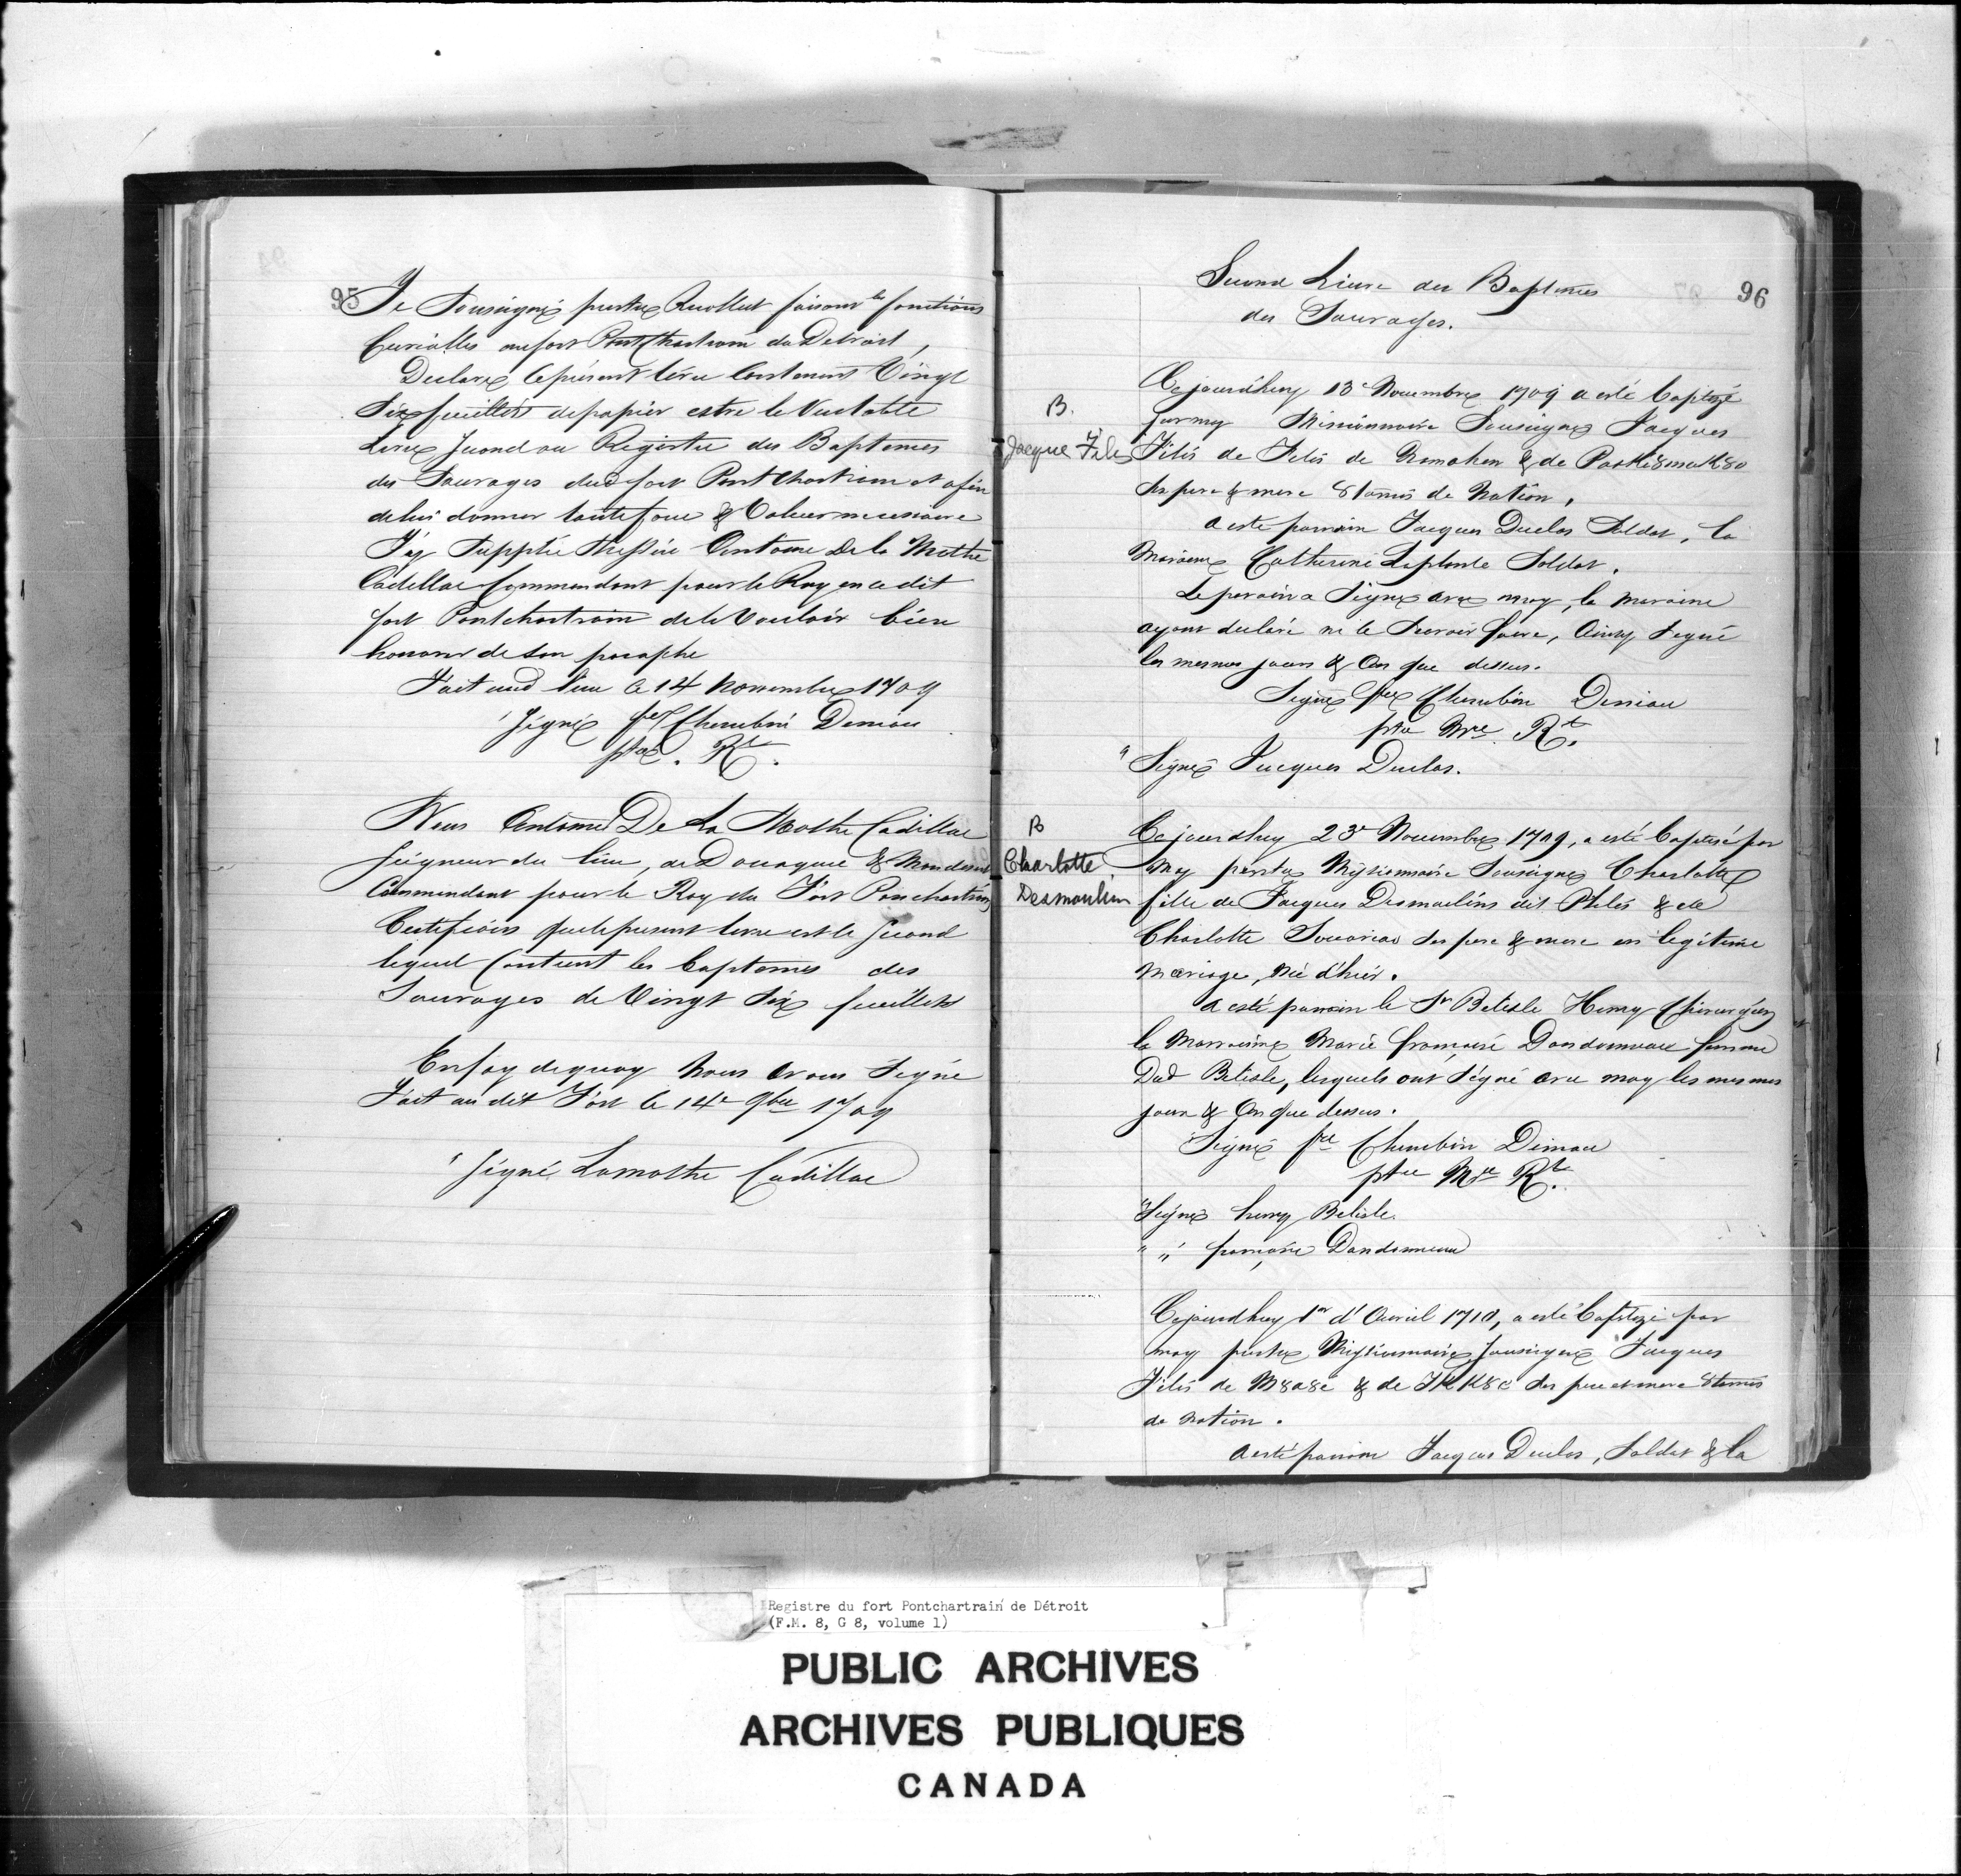 95
Je Sousigné prestre Recollect faisant les fonctions
Curialles au fort Pontchartrain du Detroit,
Declare le présent livre Contenant Vingt
Six feuillets de papier estre le Veritable
Livre Second ou Registre des Baptemes
des Sauvages dud fort Pontchartrain et afin
de lui donner toute foue & Valeur necessaire
J'ay Supplié Messire Antoine De la Mothe
Cadillac Commendant pour le Roy en ce dit
fort Pontchartrain de le Vouloir bien
honorer de Son paraphe
Fait aud lieu le 14 Novembre 1709
Signé fre Cherubin Deniau
ptre. Rt.
Nous Antoine De La Mothe Cadillac
Seigneur du lieu, de Douaquec & Mondesert
Commendant pour le Roy du Fort Ponchartrin
Certifions que le present livre est le Second
lequel Contient les baptemes des
Sauvages de Vingt Six feuillets
En foy de quoy Nous avons Signé
Fait au dit Fort le 14e 9bre 1709
Signé Lamothe Cadillac
96
Second Livre des Baptemes
des Sauvages.
B.
Jacque Filis
Ce jourd'huy 13e Novembre 1709 a esté baptizé
par moy Missionnaire Sousigné Jacques
Filis de Filis de & de
Ses pere & mere 8tamis de Nation,
a este parrain Jacques Duclos Soldat, la
Maraine Catherine Leplante Soldat.
Le parain a Signé avec moy, la maraine
ayant declaré ne le Scavoir faire, Ainsy Signé
les mesmes jours & an que dessus.
Signé fre Cherubin Deniau
ptre Mre Rt.
" Signé Jacques Duclos.
B
Charlotte
Desmoulin
Ce jourdhuy 23e Novembre 1709, a esté baptisé par
moy prestre Missionnaire Sousigné Charlotte
fille de Jacques Desmoulins dit Philis & de
Charlotte Sauariau Ses pere & mere en legitime
mariage, née d'hier.
a esté parrain le Sr Belisle Henry Chirurgien
la Marraine Marie françoise Dandonneau femme
Dud Belisle, lesquels ont Signé avec moy les mesmes
jour & An que dessus.
Signé fre Cherubin Deniau
ptre Mre Rt.
"Signé henry Belisle.
" " françoise Dandonneau
Ce jourdhuy 1er d'Avril 1710, a esté baptizé par
moy prestre Missionnaire Sousigné Jacques
Filis de M8a8e & de Ses pere et mere 8tamis
de Nation.
a esté parrain Jacques Duclos, Soldat & la
Registre du fort Pontchartrain de Détroit
(F.M. 8, G 8, volume 1)
PUBLIC ARCHIVES
ARCHIVES PUBLIQUES
CANADA